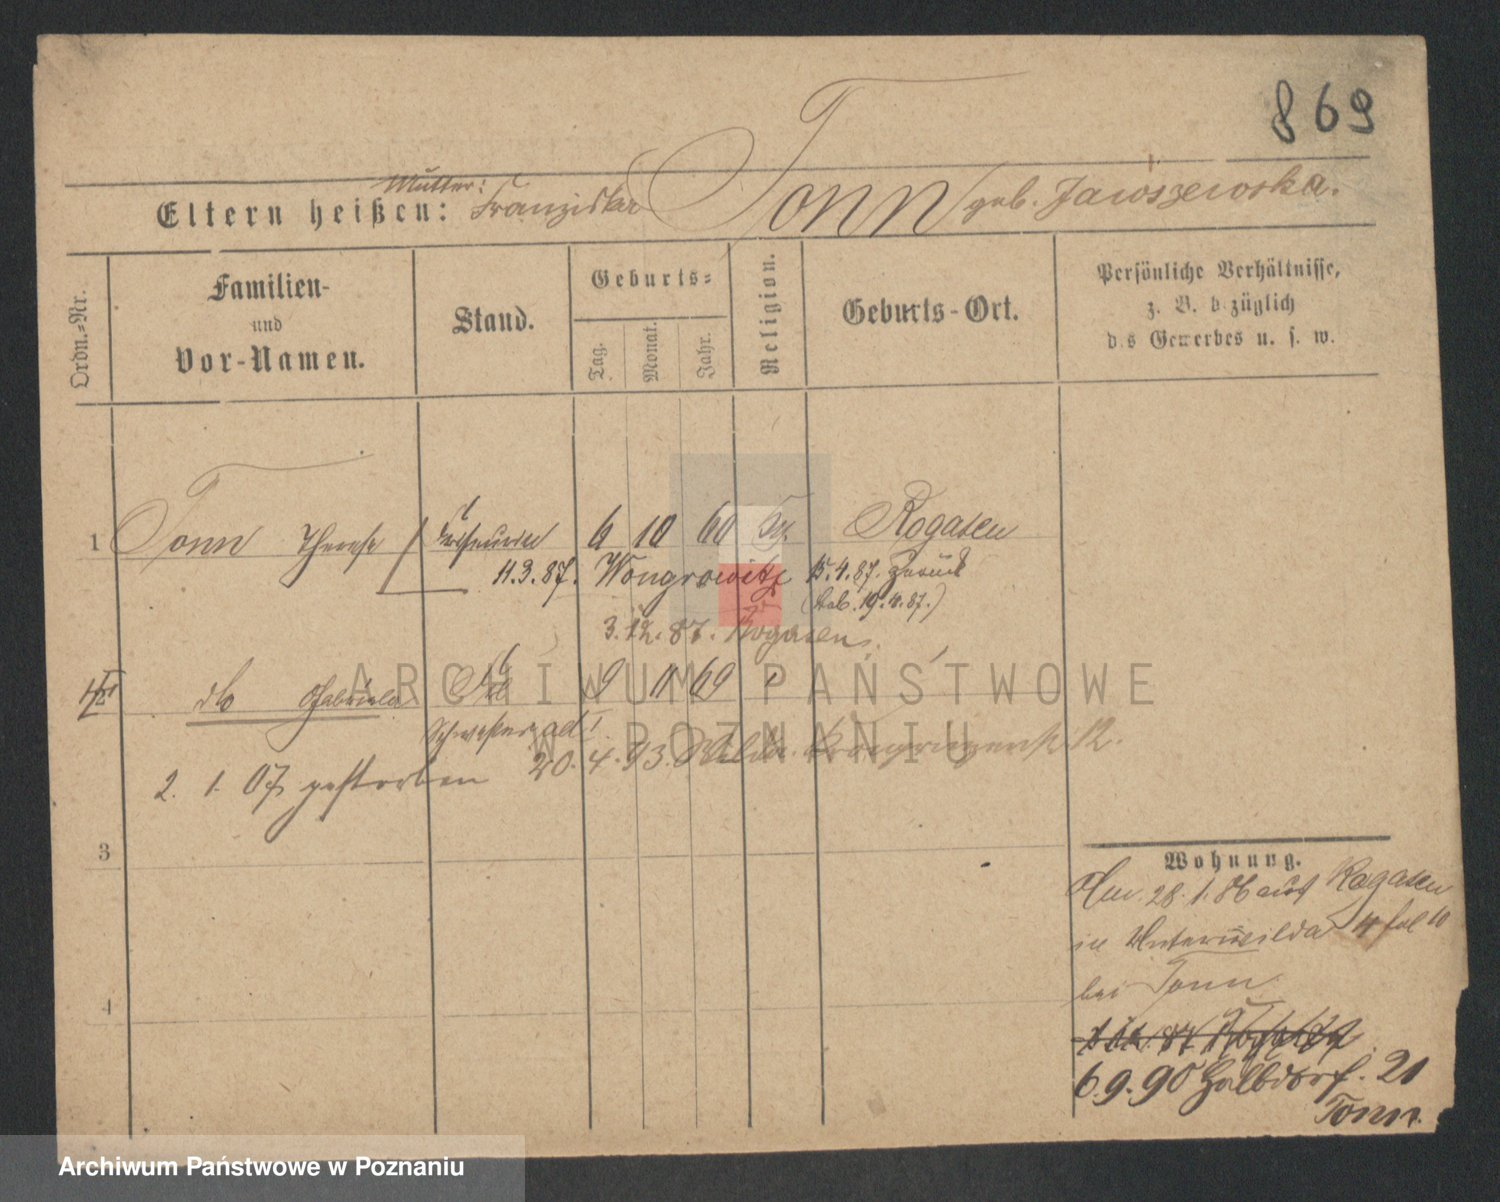 869
Mutter:
Eltern heißen: Franziska Tonn geb. Jawoszewska.
Ordn.=Nr.
Familien-
und
Vor-Namen.
Stand.
Geburts=
Tag.
Monat.
Jahr.
Religion.
Geburts-Ort.
Persönliche Verhältnisse,
z. B. bezüglich
des Gewerbes u. s. w.
1 Tonn Therese 6 10 60 Rogasen
11.3.87. Wongrowitz 15.4.87. zurück
19.4.87.)
3.12.87. Rogasen.
do Gabriela 9 11 69
Schwester ad 1
20.4.93. Wilda Kronprinzenstr. 12.
2. 1. 07 gestorben
3
4
Wohnung.
Am 28.1.86 aus Rogasen
in Unterwilda 4
bei Tonn
6.9.90 Halbdorf. 21
Tonn.
ARCHIWUM PAŃSTWOWE
W POZNANIU
Archiwum Państwowe w Poznaniu